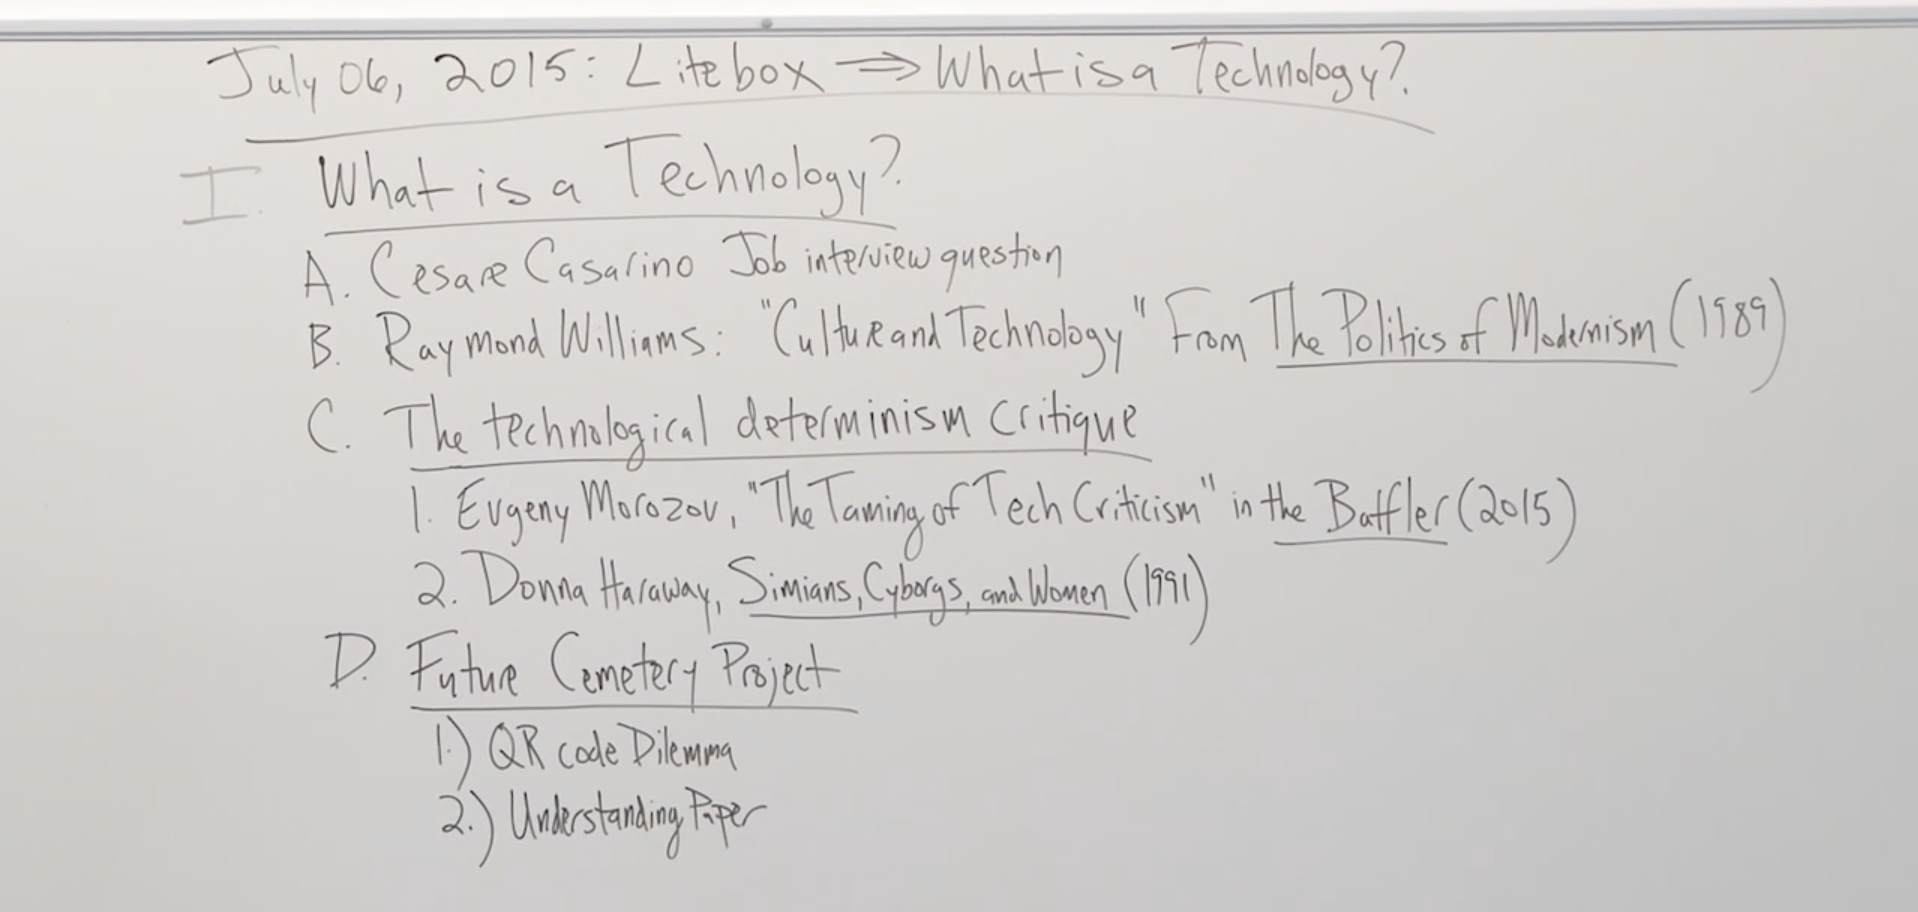 July 06, 2015: Litebox ⇒ What is a Technology?
I. What is a Technology?
A. Cesare Casarino Job interview question
B. Raymond Williams: "Culture and Technology" From The Politics of Modernism (1989)
C. The technological determinism critique
1. Evgeny Morozov, "The Taming of Tech Criticism" in the Baffler (2015)
2. Donna Haraway, Simians, Cyborgs, and Women (1991)
D. Future Cemetery Project
1.) QR code Dilemma
2.) Understanding Paper